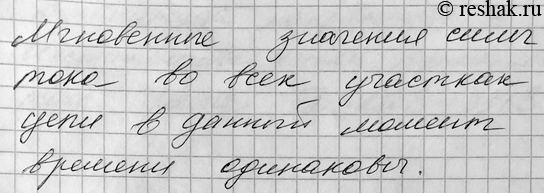 © reshak.ru
Мгновенные значения силы
тока во всех участках
цепи в данный момент
времени одинаковы.